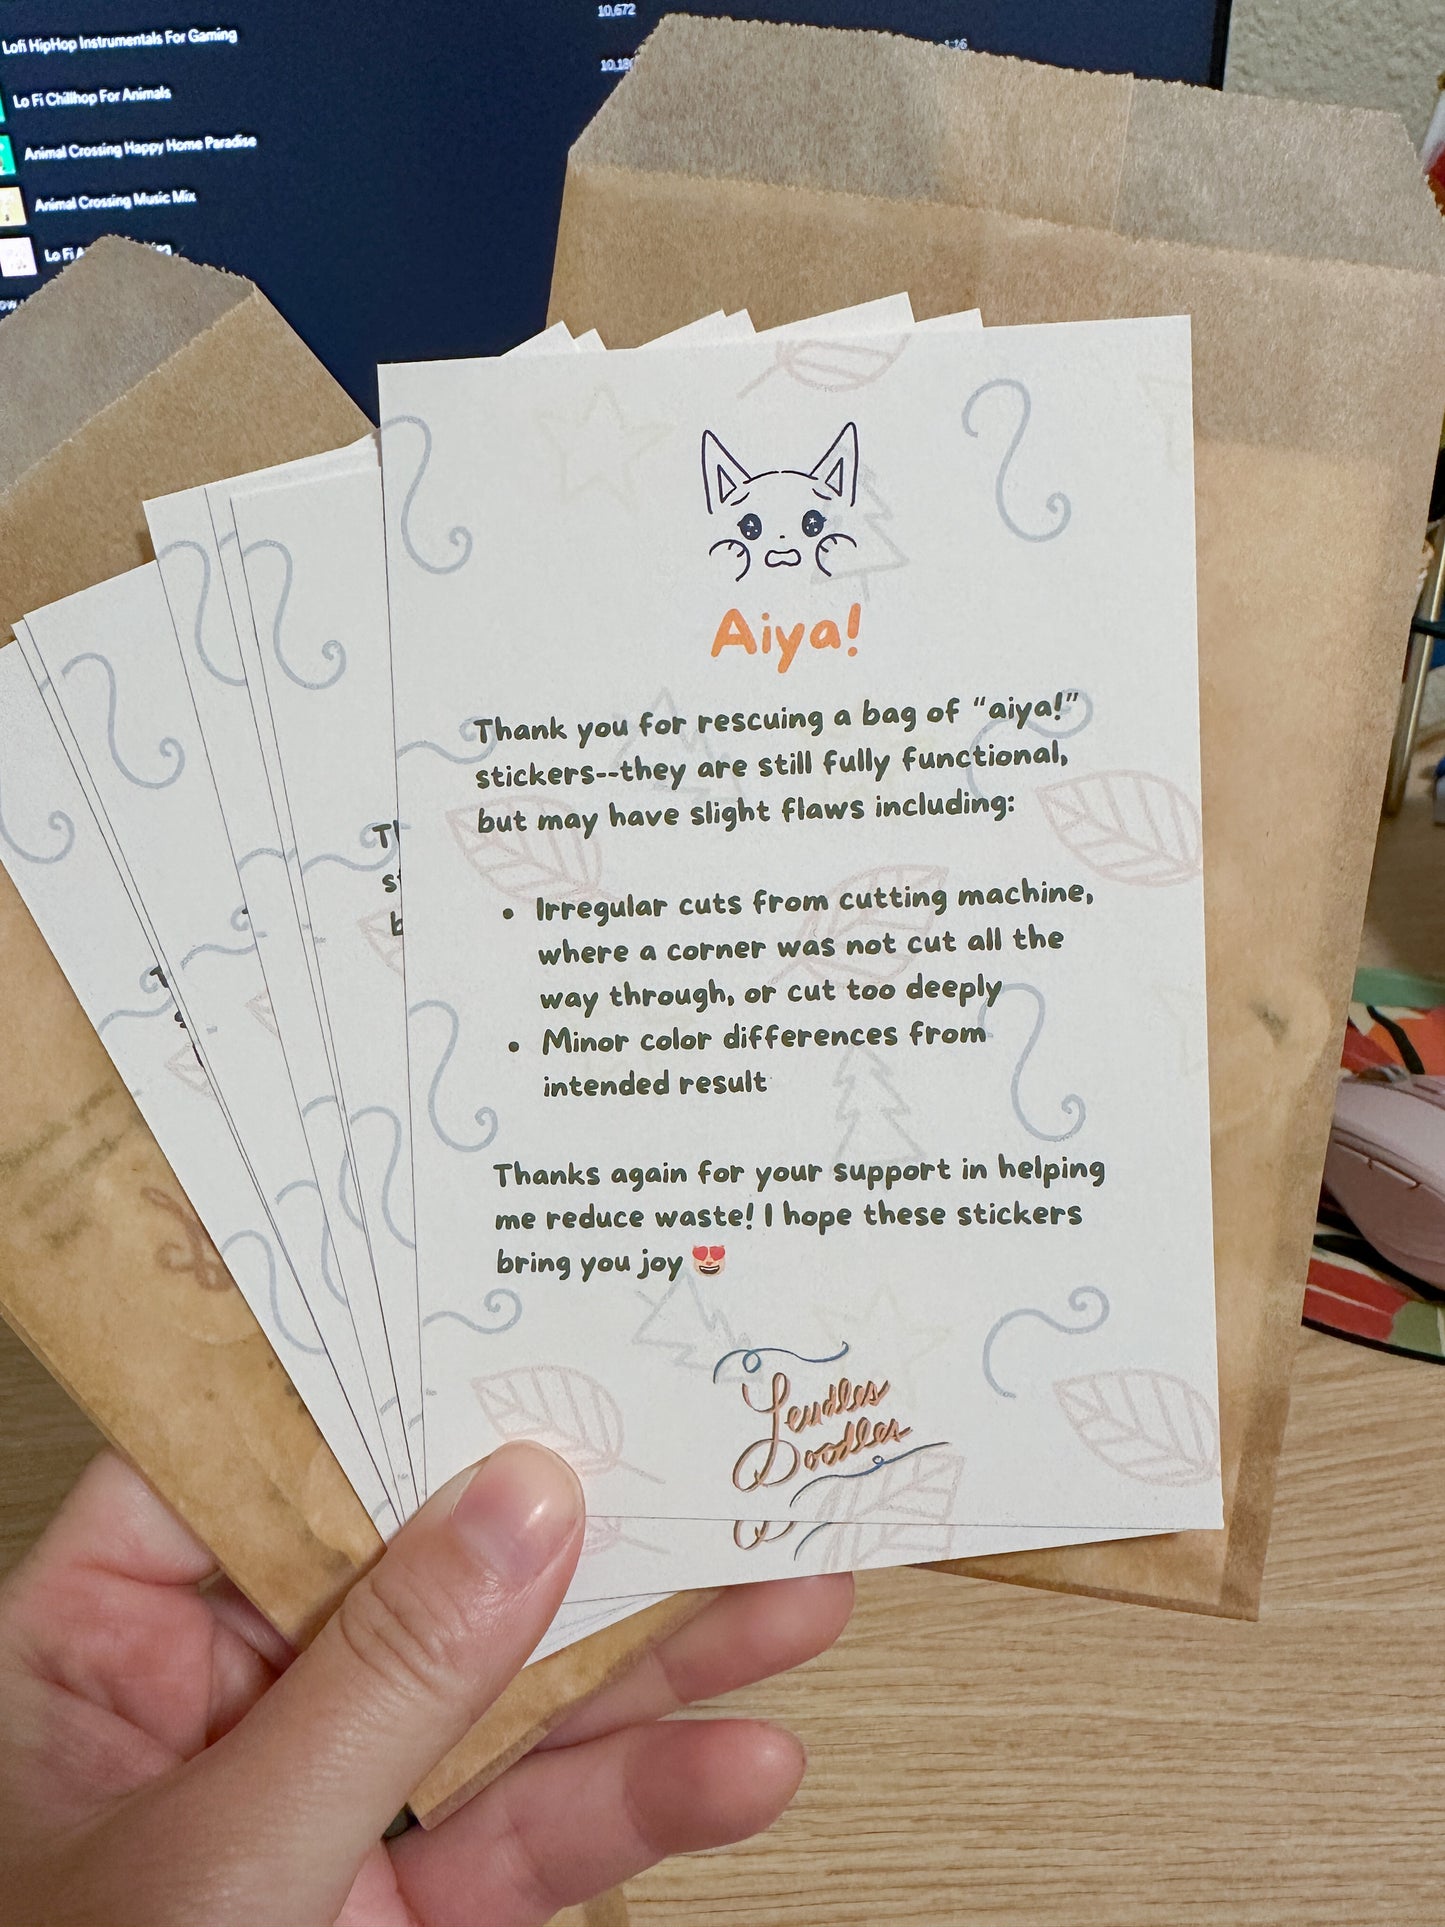 Lofi HipHop Instrumentals For Gaming
Lo Fi Chillhop For Animals
Animal Crossing Happy Home Paradise
Animal Crossing Music Mix
Lo Fi
10,672
Aiya!
Thank you for rescuing a bag of “aiya!”
stickers--they are still fully functional,
but may have slight flaws including:
• Irregular cuts from cutting machine,
where a corner was not cut all the
way through, or cut too deeply
• Minor color differences from
intended result
Thanks again for your support in helping
me reduce waste! I hope these stickers
bring you joy 😻
Leudles
Doodles